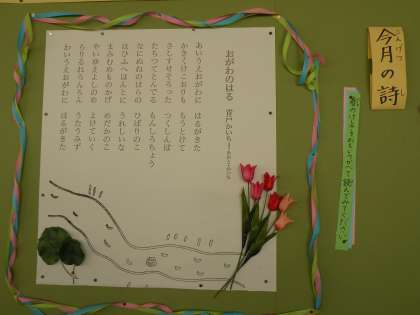 今月の詩
のけしきをおもいうかべて読んでみてください
おがわのはる
青戸かいち
あいうえおがわに はるがきた
かきくけこおりも もうとけて
さしすせそろった つくしんぼ
たちつてとんでる もんしろちょう
なにぬねのはらの ひばりのこ
はひふへほんとに うれしいな
まみむめものかげ めだかのこ
やいゆえよしのめ よけていく
らりるれろんろん うたうみず
わいうえおがわに はるがきた